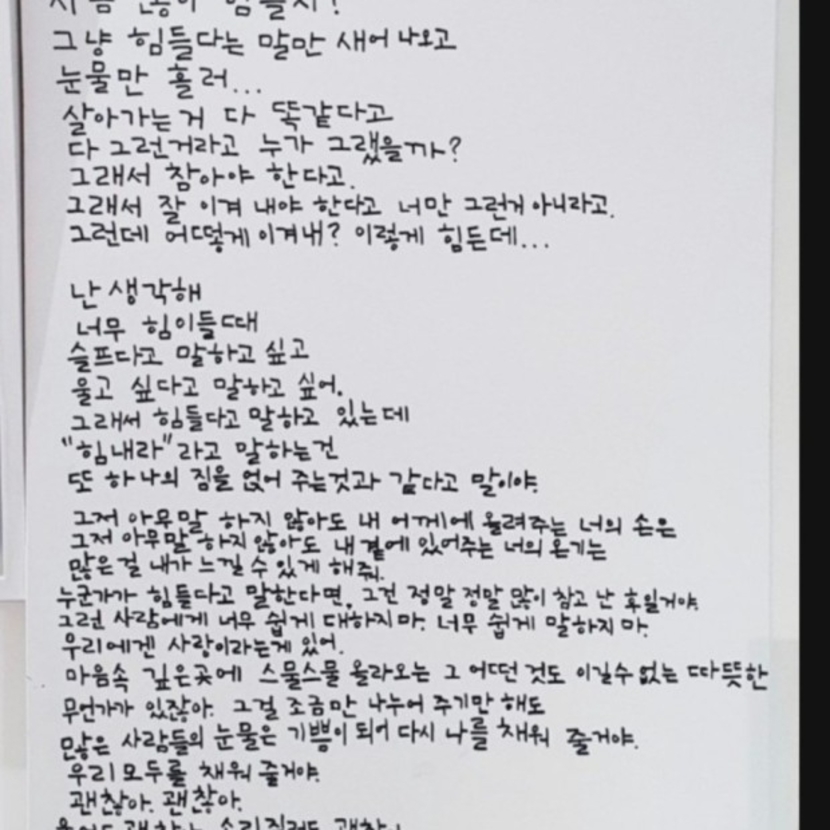 지금 많이 힘들지?
그냥 힘들다는 말만 새어 나오고
눈물만 흘러...
살아가는거 다 똑같다고
다 그런거라고 누가 그랬을까?
그래서 참아야 한다고.
그래서 잘 이겨 내야 한다고 너만 그런거 아니라고.
그런데 어떻게 이겨내? 이렇게 힘든데...
난 생각해
너무 힘이들때
슬프다고 말하고 싶고
울고 싶다고 말하고 싶어.
그래서 힘들다고 말하고 있는데
"힘내라"라고 말하는건
또 하나의 짐을 얹어 주는것과 같다고 말이야.
그저 아무말 하지 않아도 내 어깨에 올려주는 너의 손은
그저 아무말 하지 않아도 내 곁에 있어주는 너의 온기는
많은걸 내가 느낄 수 있게 해줘.
누군가가 힘들다고 말한다면, 그건 정말 정말 많이 참고 난 후일거야.
그런 사람에게 너무 쉽게 대하지마. 너무 쉽게 말하지 마.
우리에겐 사랑이라는게 있어.
마음속 깊은곳에 스물스물 올라오는 그 어떤 것도 이길수 없는 따뜻한
무언가가 있잖아. 그걸 조금만 나누어 주기만 해도
많은 사람들의 눈물은 기쁨이 되어 다시 나를 채워 줄거야.
우리 모두를 채워 줄거야.
괜찮아. 괜찮아.